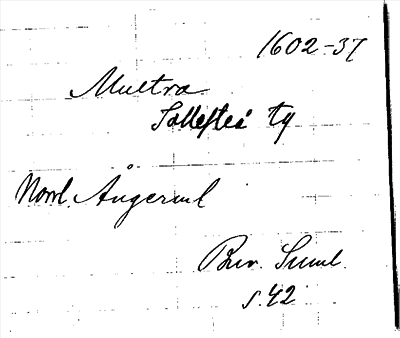 1602-37
Multra
Sollefteå tg
Norrl. Ångerml
Bur. Suml.
s. 42